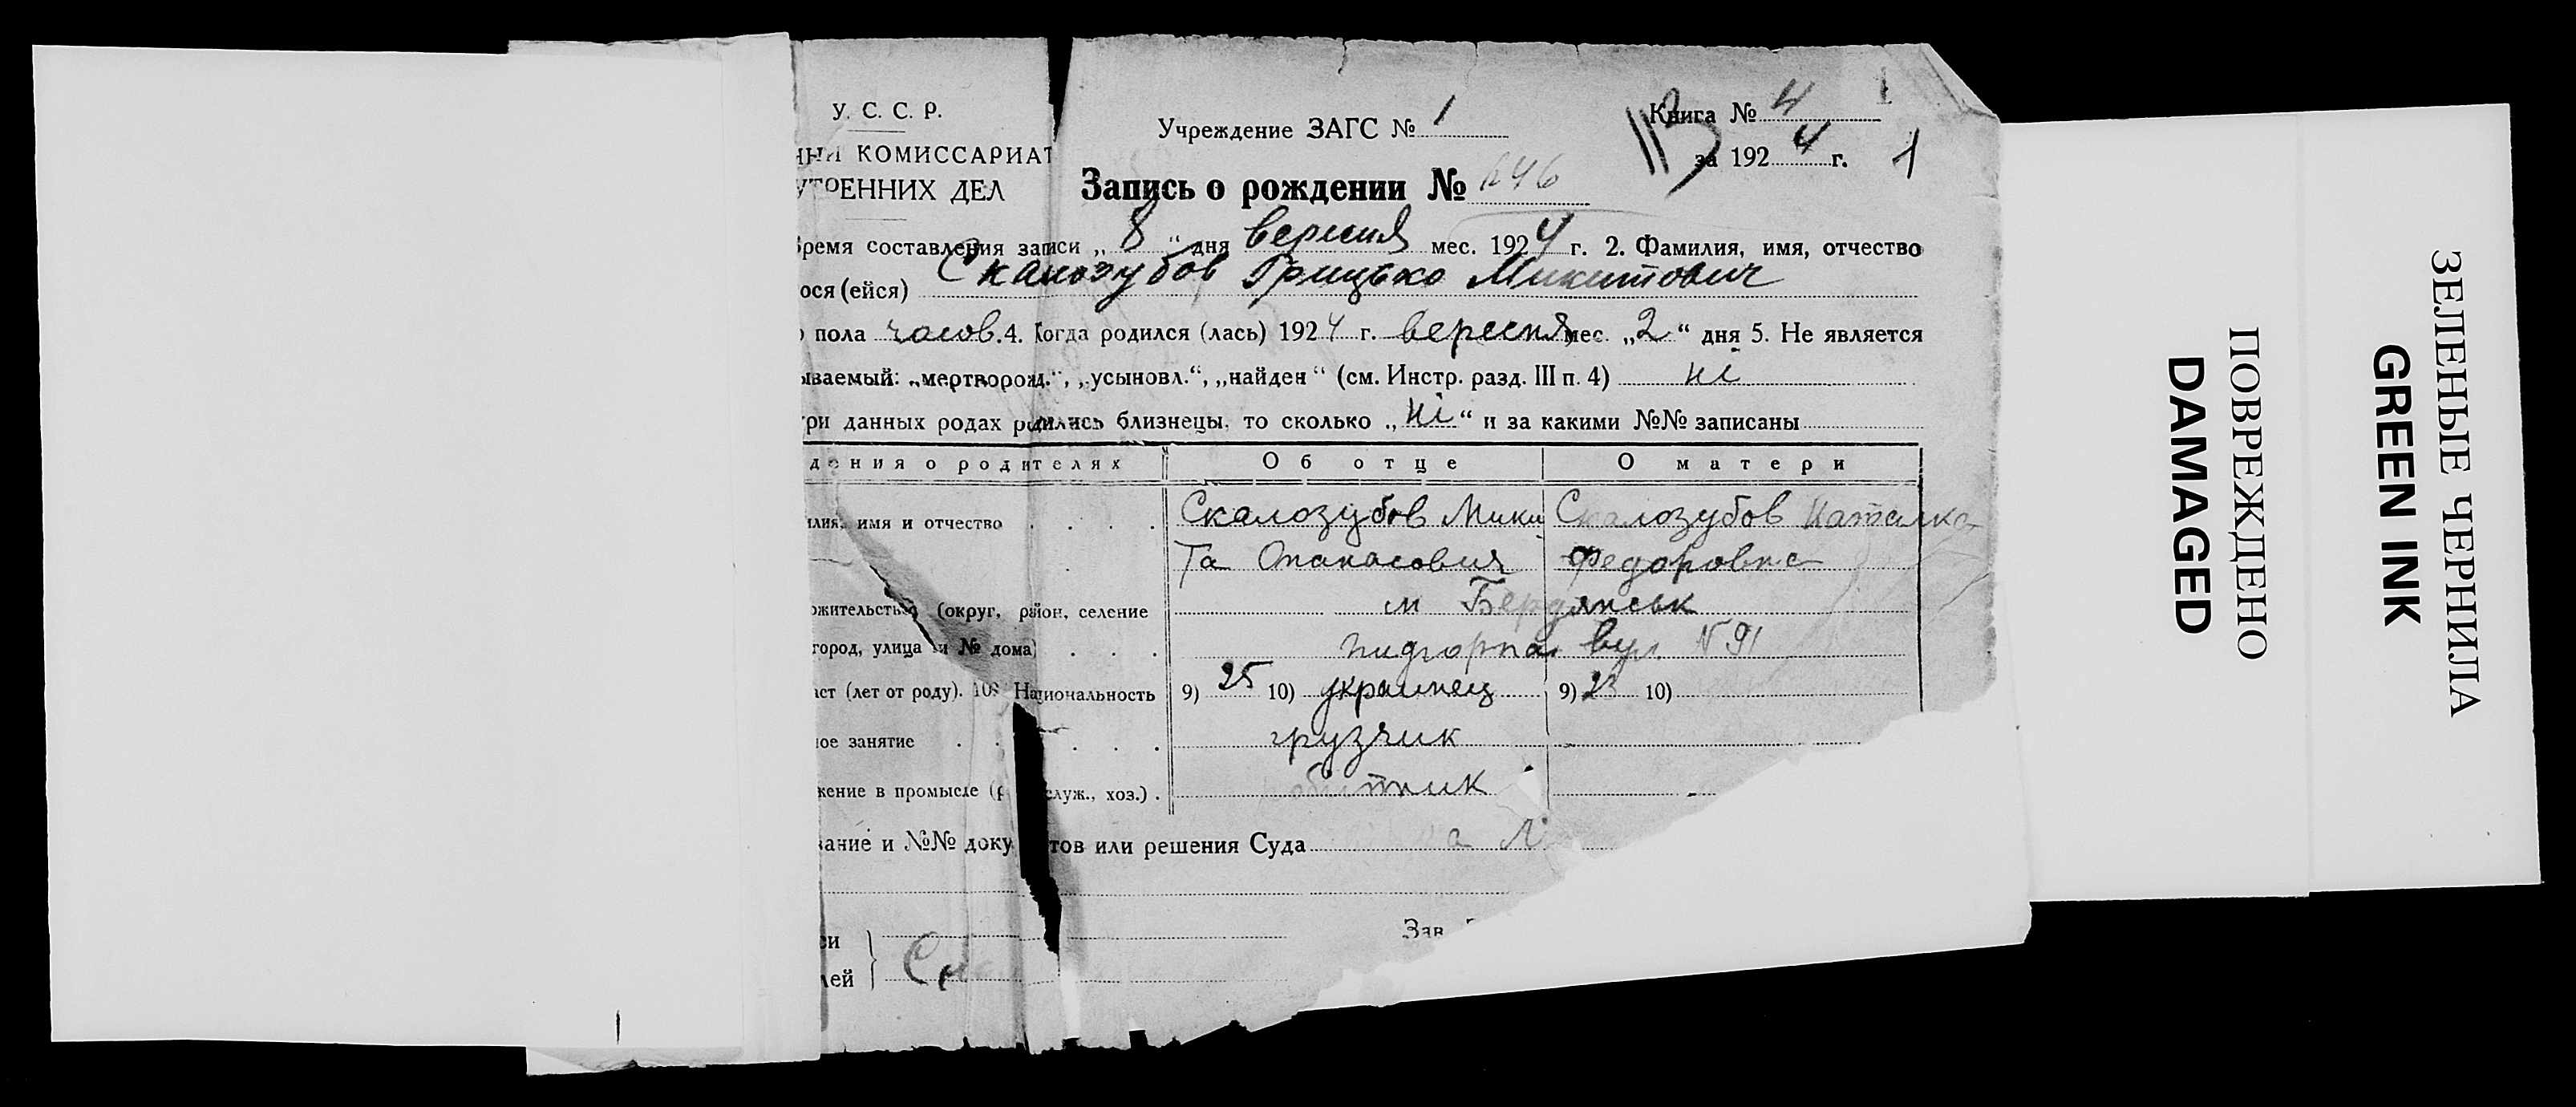 У. С. С. Р.
КОМИССАРИАТ
ВНУТРЕННИХ ДЕЛ
Учреждение ЗАГС № 1
Книга № 4
за 1924 г. 1
113
Запись о рождении №
время составления записи „ 8 “ дня вересня мес. 1924 г. 2. Фамилия, имя, отчество
ося (ейся) Скалозубов Грицько Микитович
пола часов. 4. Когда родился (лась) 1924 г. вересня мес. „2“ дня 5. Не является
ываемый: „мертворожд.“, „усыновл.“, „найден“ (см. Инстр. разд. III п. 4) ні
ри данных родах родились близнецы, то сколько „ні“ и за какими №№ записаны
дения о родителях Об отце О матери
илия, имя и отчество . . . . Скалозубов Мики Скалозубов Наталка
та Опанасович Федоровна
ожительство (округ, район, селение м Бердянськ
город, улица и № дома) . . . вул. N 91
аст (лет от роду). 10) Национальность 9) 25 10) украинец 9) 23 10)
ное занятие . . . . . грузчик
жение в промысле ( служ., хоз.) .
вание и №№ доку тов или решения Суда
си
лей
Зав.
ПОВРЕЖДЕНО
DAMAGED
ЗЕЛЕНЫЕ ЧЕРНИЛА
GREEN INK